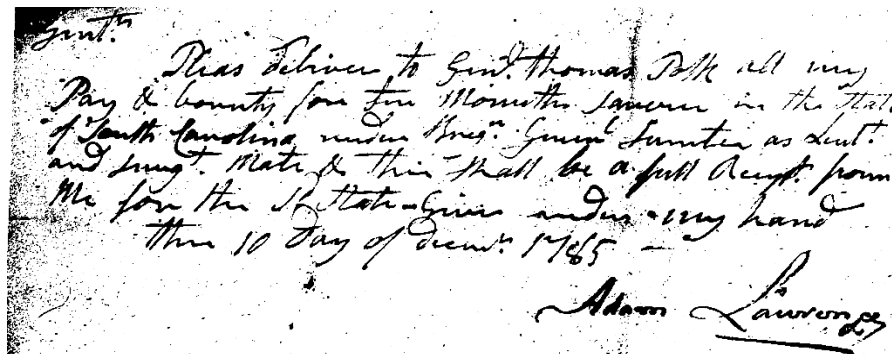 Gentn.
Pleas deliver to Genl. Thomas Polk all my
Pay & bounty for ten Months Service in the State
of South Carolina under Brigr. Generl Sumter as Leut.
and Surgt. Mate & this Shall be a full Receipt from
Me for the Sd State - Given under my hand
this 10 Day of Decemr. 1785 -
Adam Lawrence